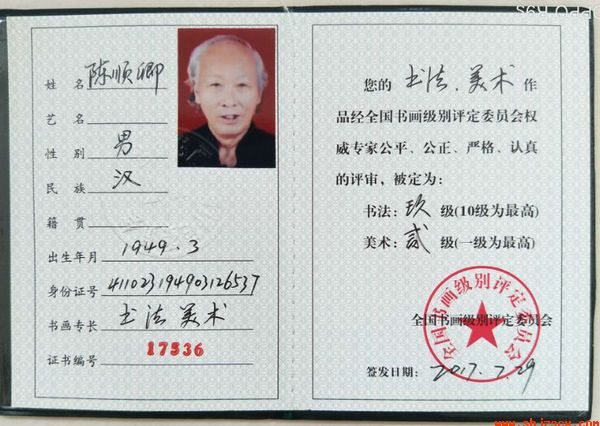 姓名 陈顺卿
艺名
性别 男
民族 汉
籍贯
出生年月 1949.3
身份证号 411023194903126537
书画专长 书法 美术
证书编号 17536
您的 书法、美术 作
品经全国书画级别评定委员会权
威专家公平、公正、严格、认真
的评审，被定为：
书法：玖 级(10级为最高)
美术：贰 级(一级为最高)
全国书画级别评定委员会
全国书画级别评定委员会
签发日期：2017.7.29